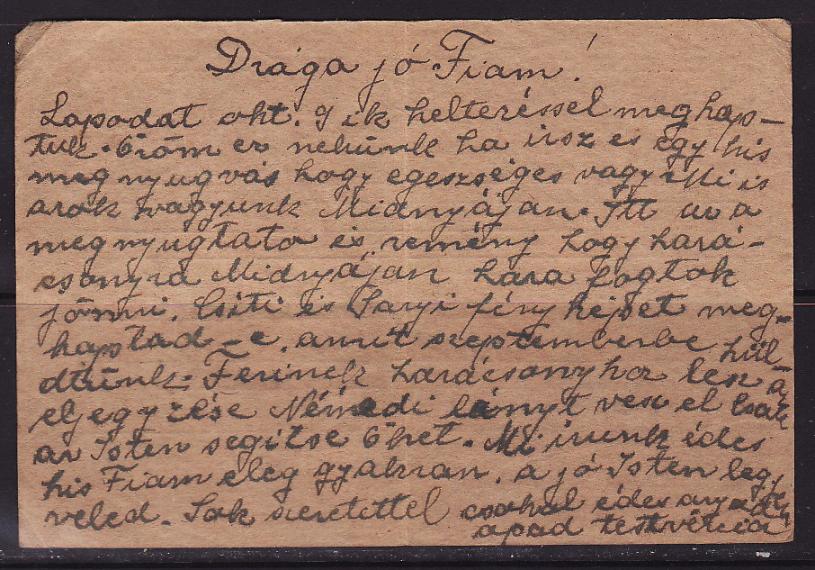 Drága jó Fiam!
Lapodat okt. I ik keltezéssel meghap-
tuk. Öröm ez nekünk ha irsz es egy kis
megnyugvás hogy egeszséges vagy. Mi is
azok vagyunk Midnyájan. Itt az a
megnyugtato és remény hogy kará-
csonyra Midnyájan haza fogtok
jönni. Csiti és Saryi fény képet meg-
kaptad-e. amit szeptemberbe kül
dtünk. Ferinek karácsonyhoz lesz a
eljegyzése Némedi lányt vesz el Csak
az Isten segitse Öket. Mi irunk édes
kis Fiam eleg gyakran. a jó Isten legy
veled. Sok szeretettel csokol édes anyád
apad testvérei